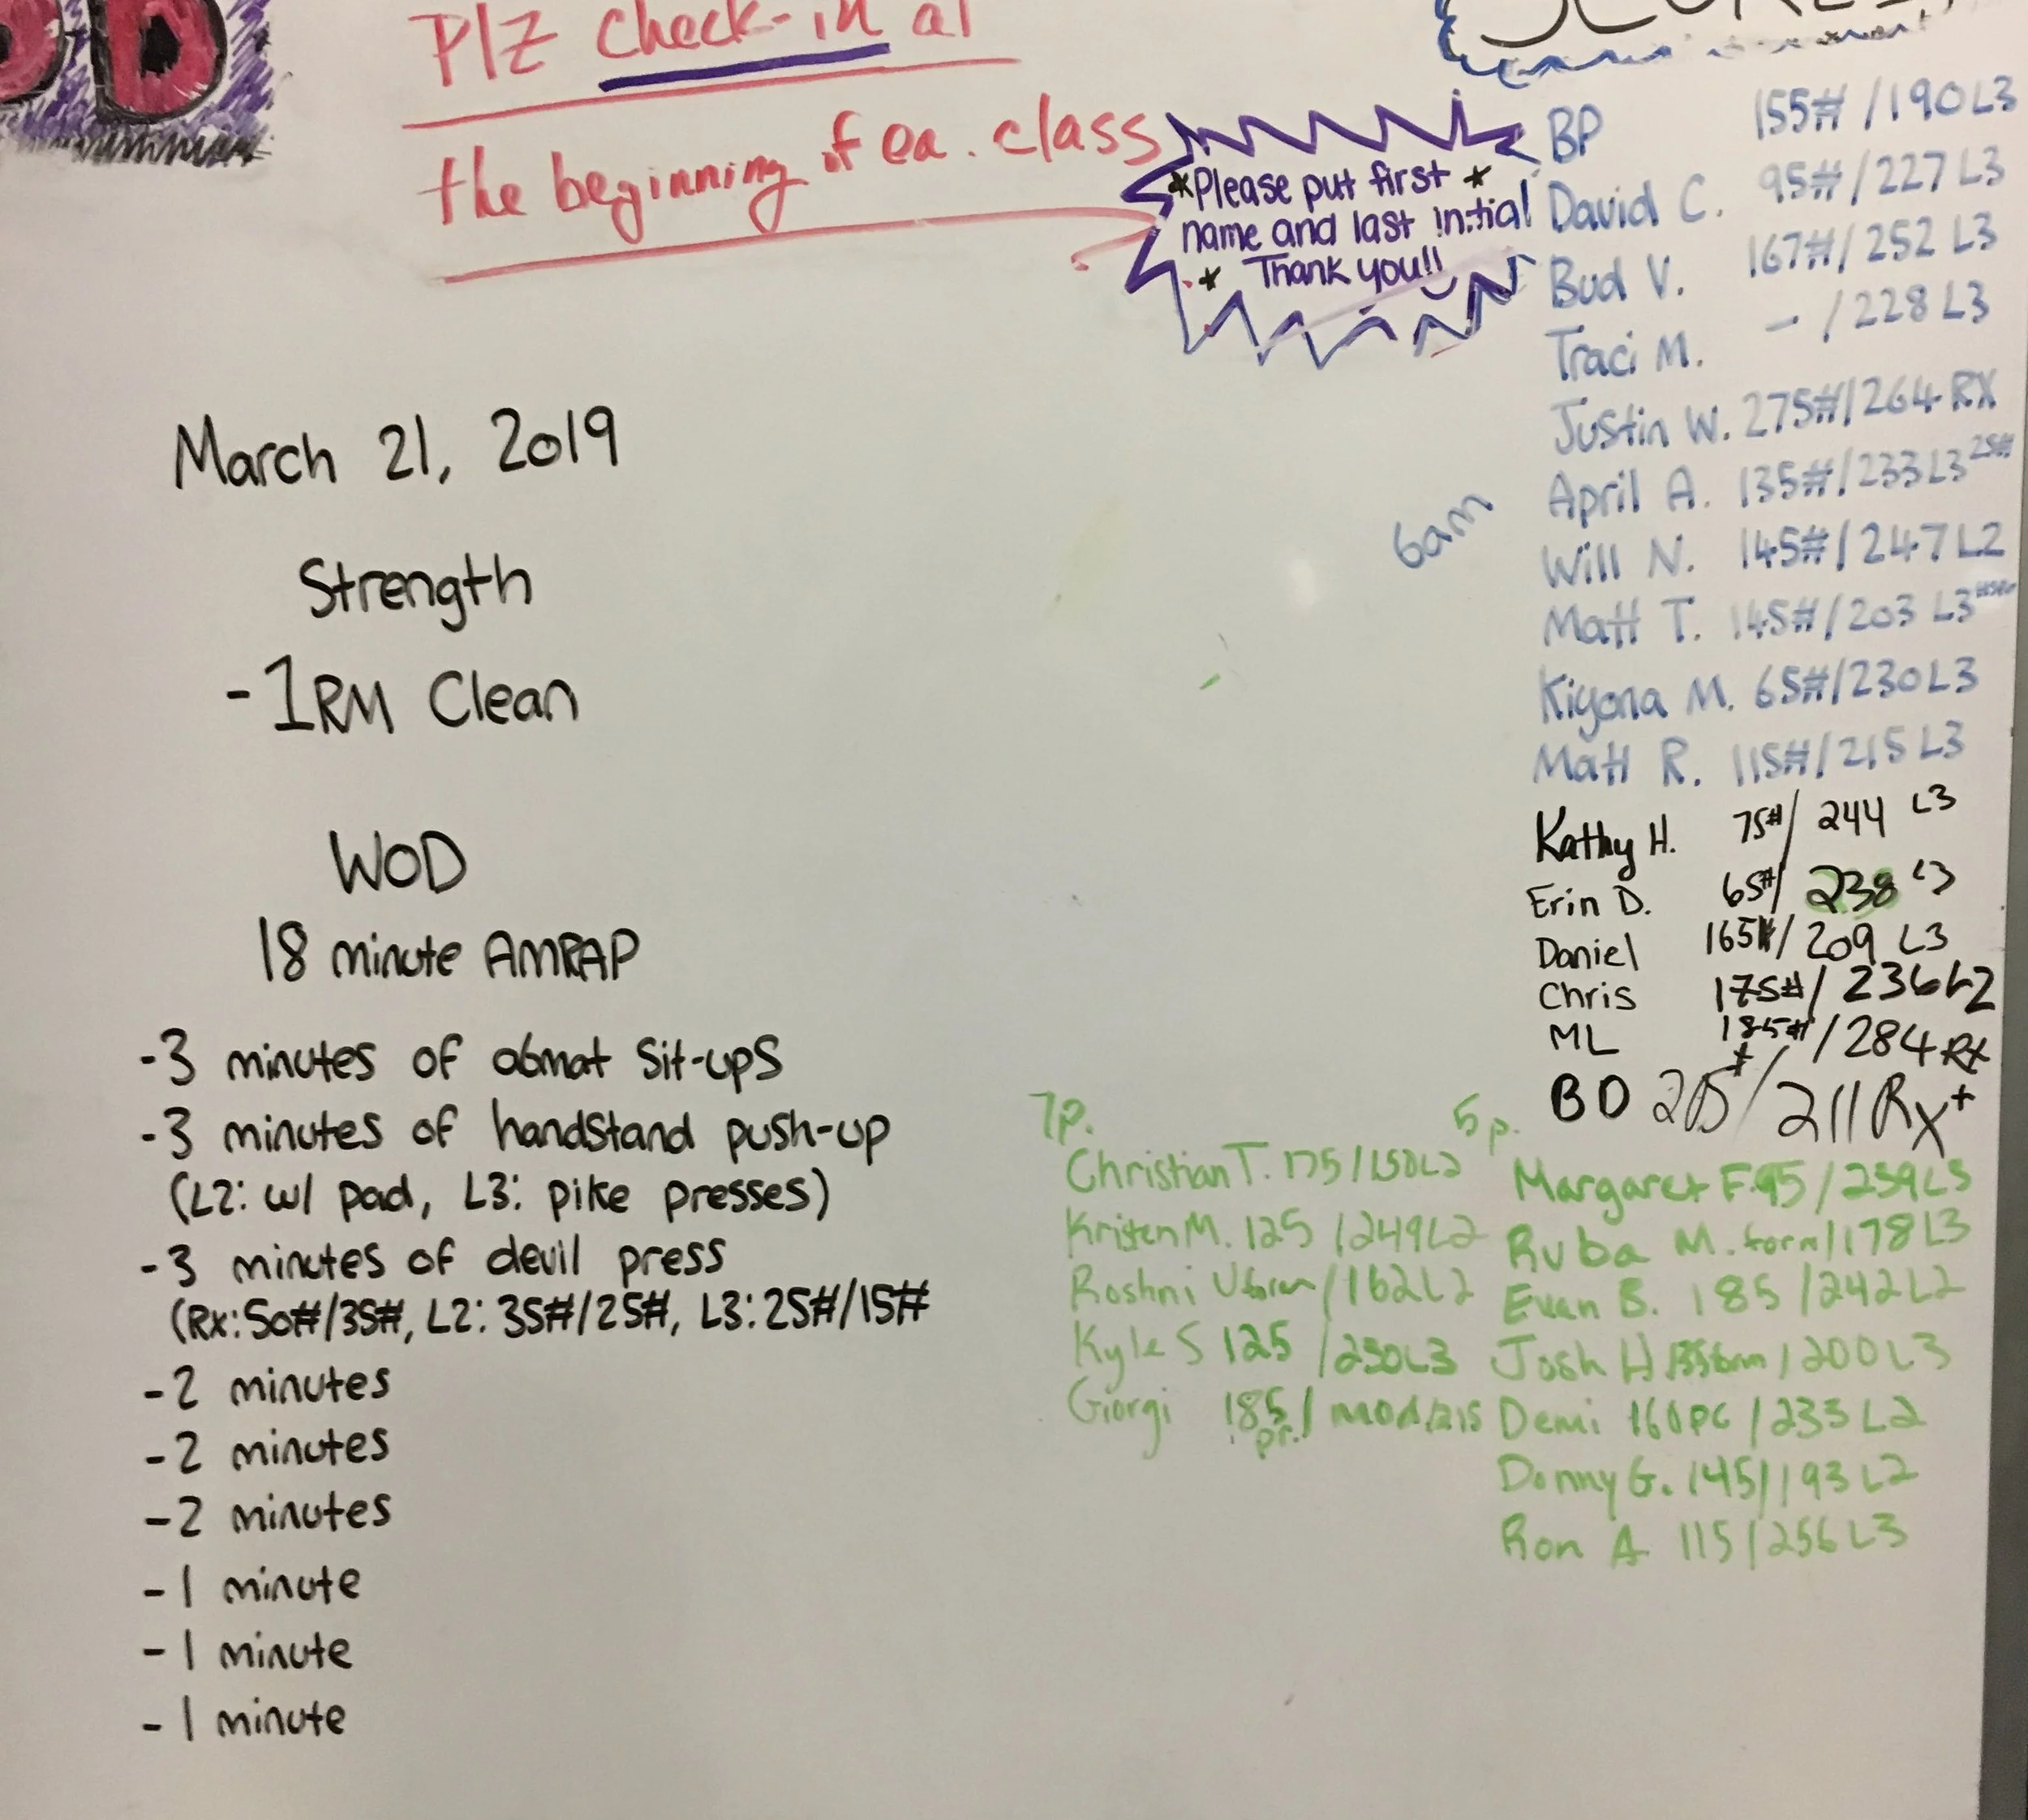 Plz check-in at
the beginning of ea. class
*Please put first *
name and last initial
* Thank you!!
March 21, 2019
Strength
-1RM Clean
WOD
18 minute AMRAP
-3 minutes of abmat sit-ups
-3 minutes of handstand push-up
(L2: w/ pad, L3: pike presses)
-3 minutes of devil press
(Rx: 50#/35#, L2: 35#/25#, L3: 25#/15#
-2 minutes
-2 minutes
-2 minutes
-1 minute
-1 minute
-1 minute
6am
BP 155# /190 L3
David C. 95# /227 L3
Bud V. 167# / 252 L3
Traci M. - /228 L3
Justin W. 275# /264 RX
April A. 135# /233 L3 25#
Will N. 145# / 247 L2
Matt T. 145# /203 L3
Kiyona M. 65# /230 L3
Matt R. 115# /215 L3
Kathy H. 75# / 244 L3
Erin D. 65# / 238 L3
Daniel 165# / 209 L3
Chris 175# / 236 L2
ML 185# / 284 Rx
BD / 211 Rx+
7p.
Christian T. 175 /150 L2
Kristen M. 125 /249 L2
Roshni U form /162 L2
Kyle S 125 /230 L3
Giorgi 185 pr. / mod. 215
5p.
Margaret F. 95 /239 L3
Ruba M. form /178 L3
Evan B. 185 /242 L2
Josh H /200 L3
Demi 160 PC /233 L2
Donny G. 145 /193 L2
Ron A 115 /256 L3